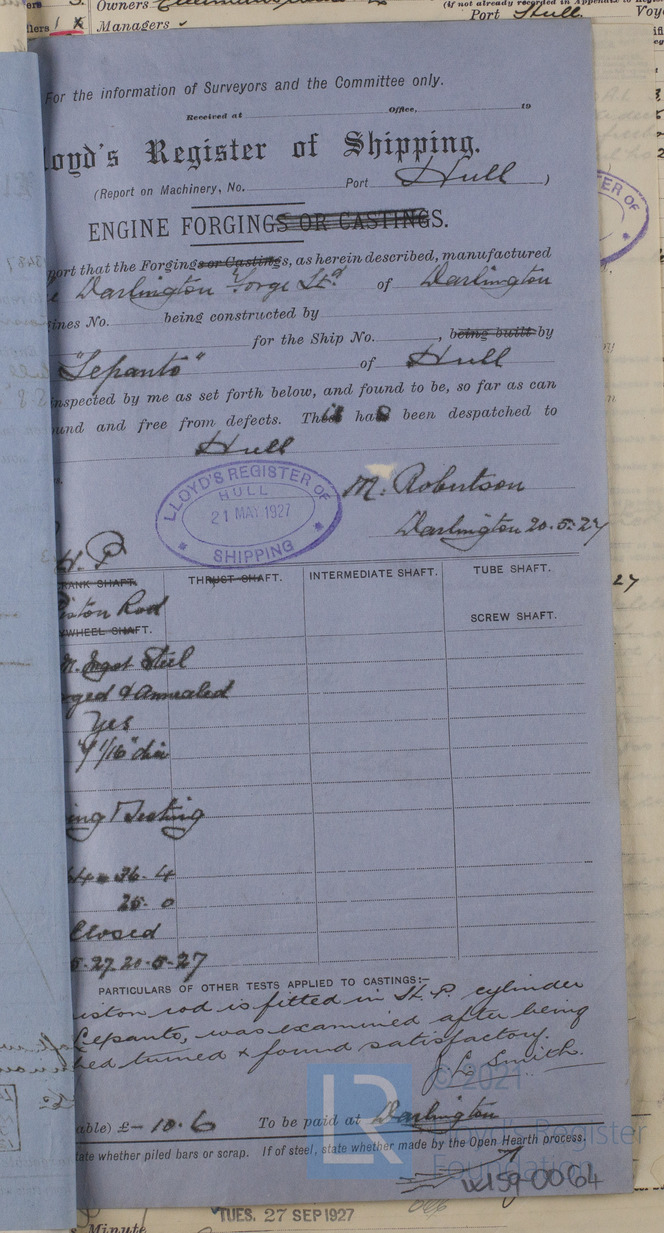 Owners
(If not already recorded in Appendix to
Port Hull Voy
Managers
For the information of Surveyors and the Committee only.
Received at Office, 19
loyd's Register of Shipping.
(Report on Machinery, No. Port Hull )
ENGINE FORGINGS OR CASTINGS.
port that the Forgings or Castings, as herein described, manufactured
e Darlington Forge Ltd of Darlington
ines No. being constructed by
for the Ship No. , being built by
"Lepanto" of Hull
inspected by me as set forth below, and found to be, so far as can
und and free from defects. This has been despatched to
Hull
LLOYD'S REGISTER OF
HULL
21 MAY 1927
SHIPPING
M. Robertson
Darlington 20.5.27
H.P
RANK SHAFT. THRUST SHAFT. INTERMEDIATE SHAFT. TUBE SHAFT.
iston Rod
YWHEEL SHAFT. SCREW SHAFT.
M. Ingot Steel
rged & Annealed
Yes
1/16" dia
ing Testing
36.4
25.0
Closed
5.27 20-5-27
PARTICULARS OF OTHER TESTS APPLIED TO CASTINGS:—
iston rod is fitted in H.P. cylinder
Lepanto, was examined after being
hed turned & found satisfactory.
J L Smith.
able) £ - 10 . 6 To be paid at Darlington
tate whether piled bars or scrap. If of steel, state whether made by the Open Hearth process.
© 2021
LR
Lloyd's Register
Foundation
W159-0064
TUES. 27 SEP 1927
s Minute